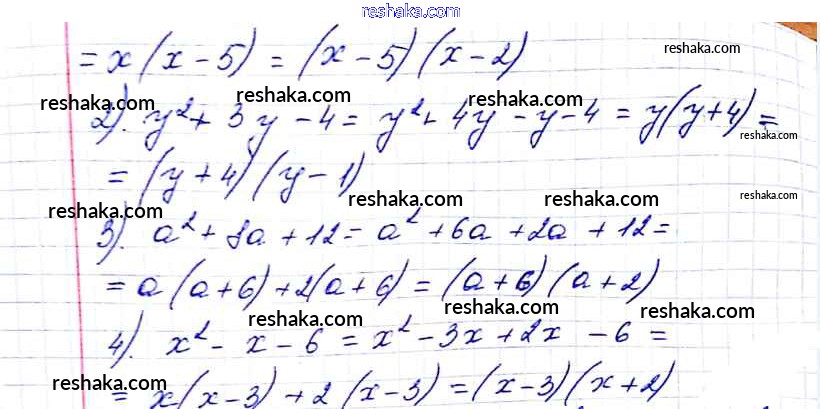 reshaka.com
= x(x-5) = (x-5)(x-2)
reshaka.com
reshaka.com reshaka.com reshaka.com
2). y²+3y-4 = y²+4y-y-4 = y(y+4) =
reshaka.com
= (y+4)(y-1)
reshaka.com reshaka.com reshaka.com reshaka.com
3). a²+8a+12 = a²+6a+2a+12 =
= a(a+6)+2(a+6) = (a+6)(a+2)
reshaka.com reshaka.com reshaka.com
4). x²-x-6 = x²-3x+2x-6 =
reshaka.com reshaka.com reshaka.com reshaka.com
= x(x-3)+2(x-3) = (x-3)(x+2)
reshaka.com